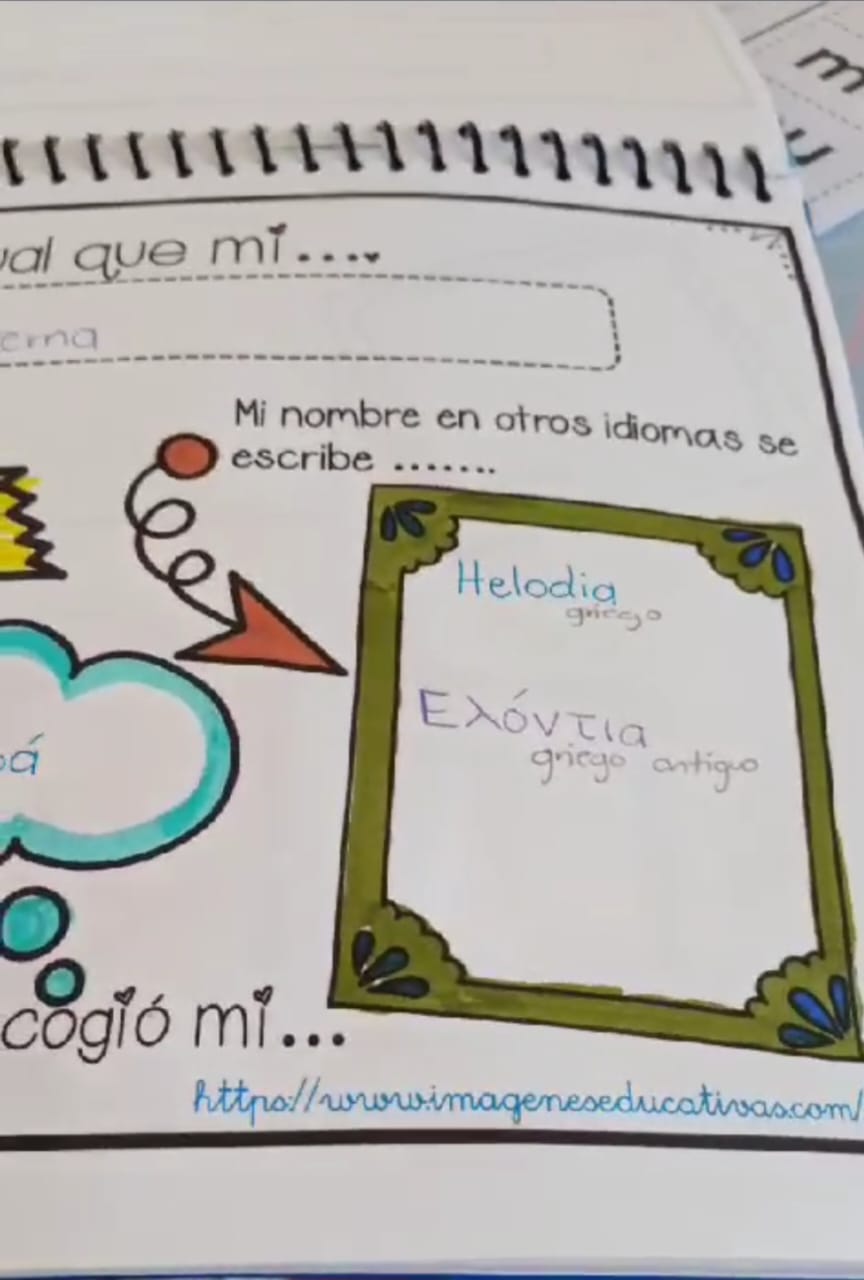 m
ual que mi....
erna
Mi nombre en otros idiomas se
escribe .......
Helodia
griego
Ελόντια
griego antiguo
pá
cogió mi...
https://www.imageneseducativas.com/